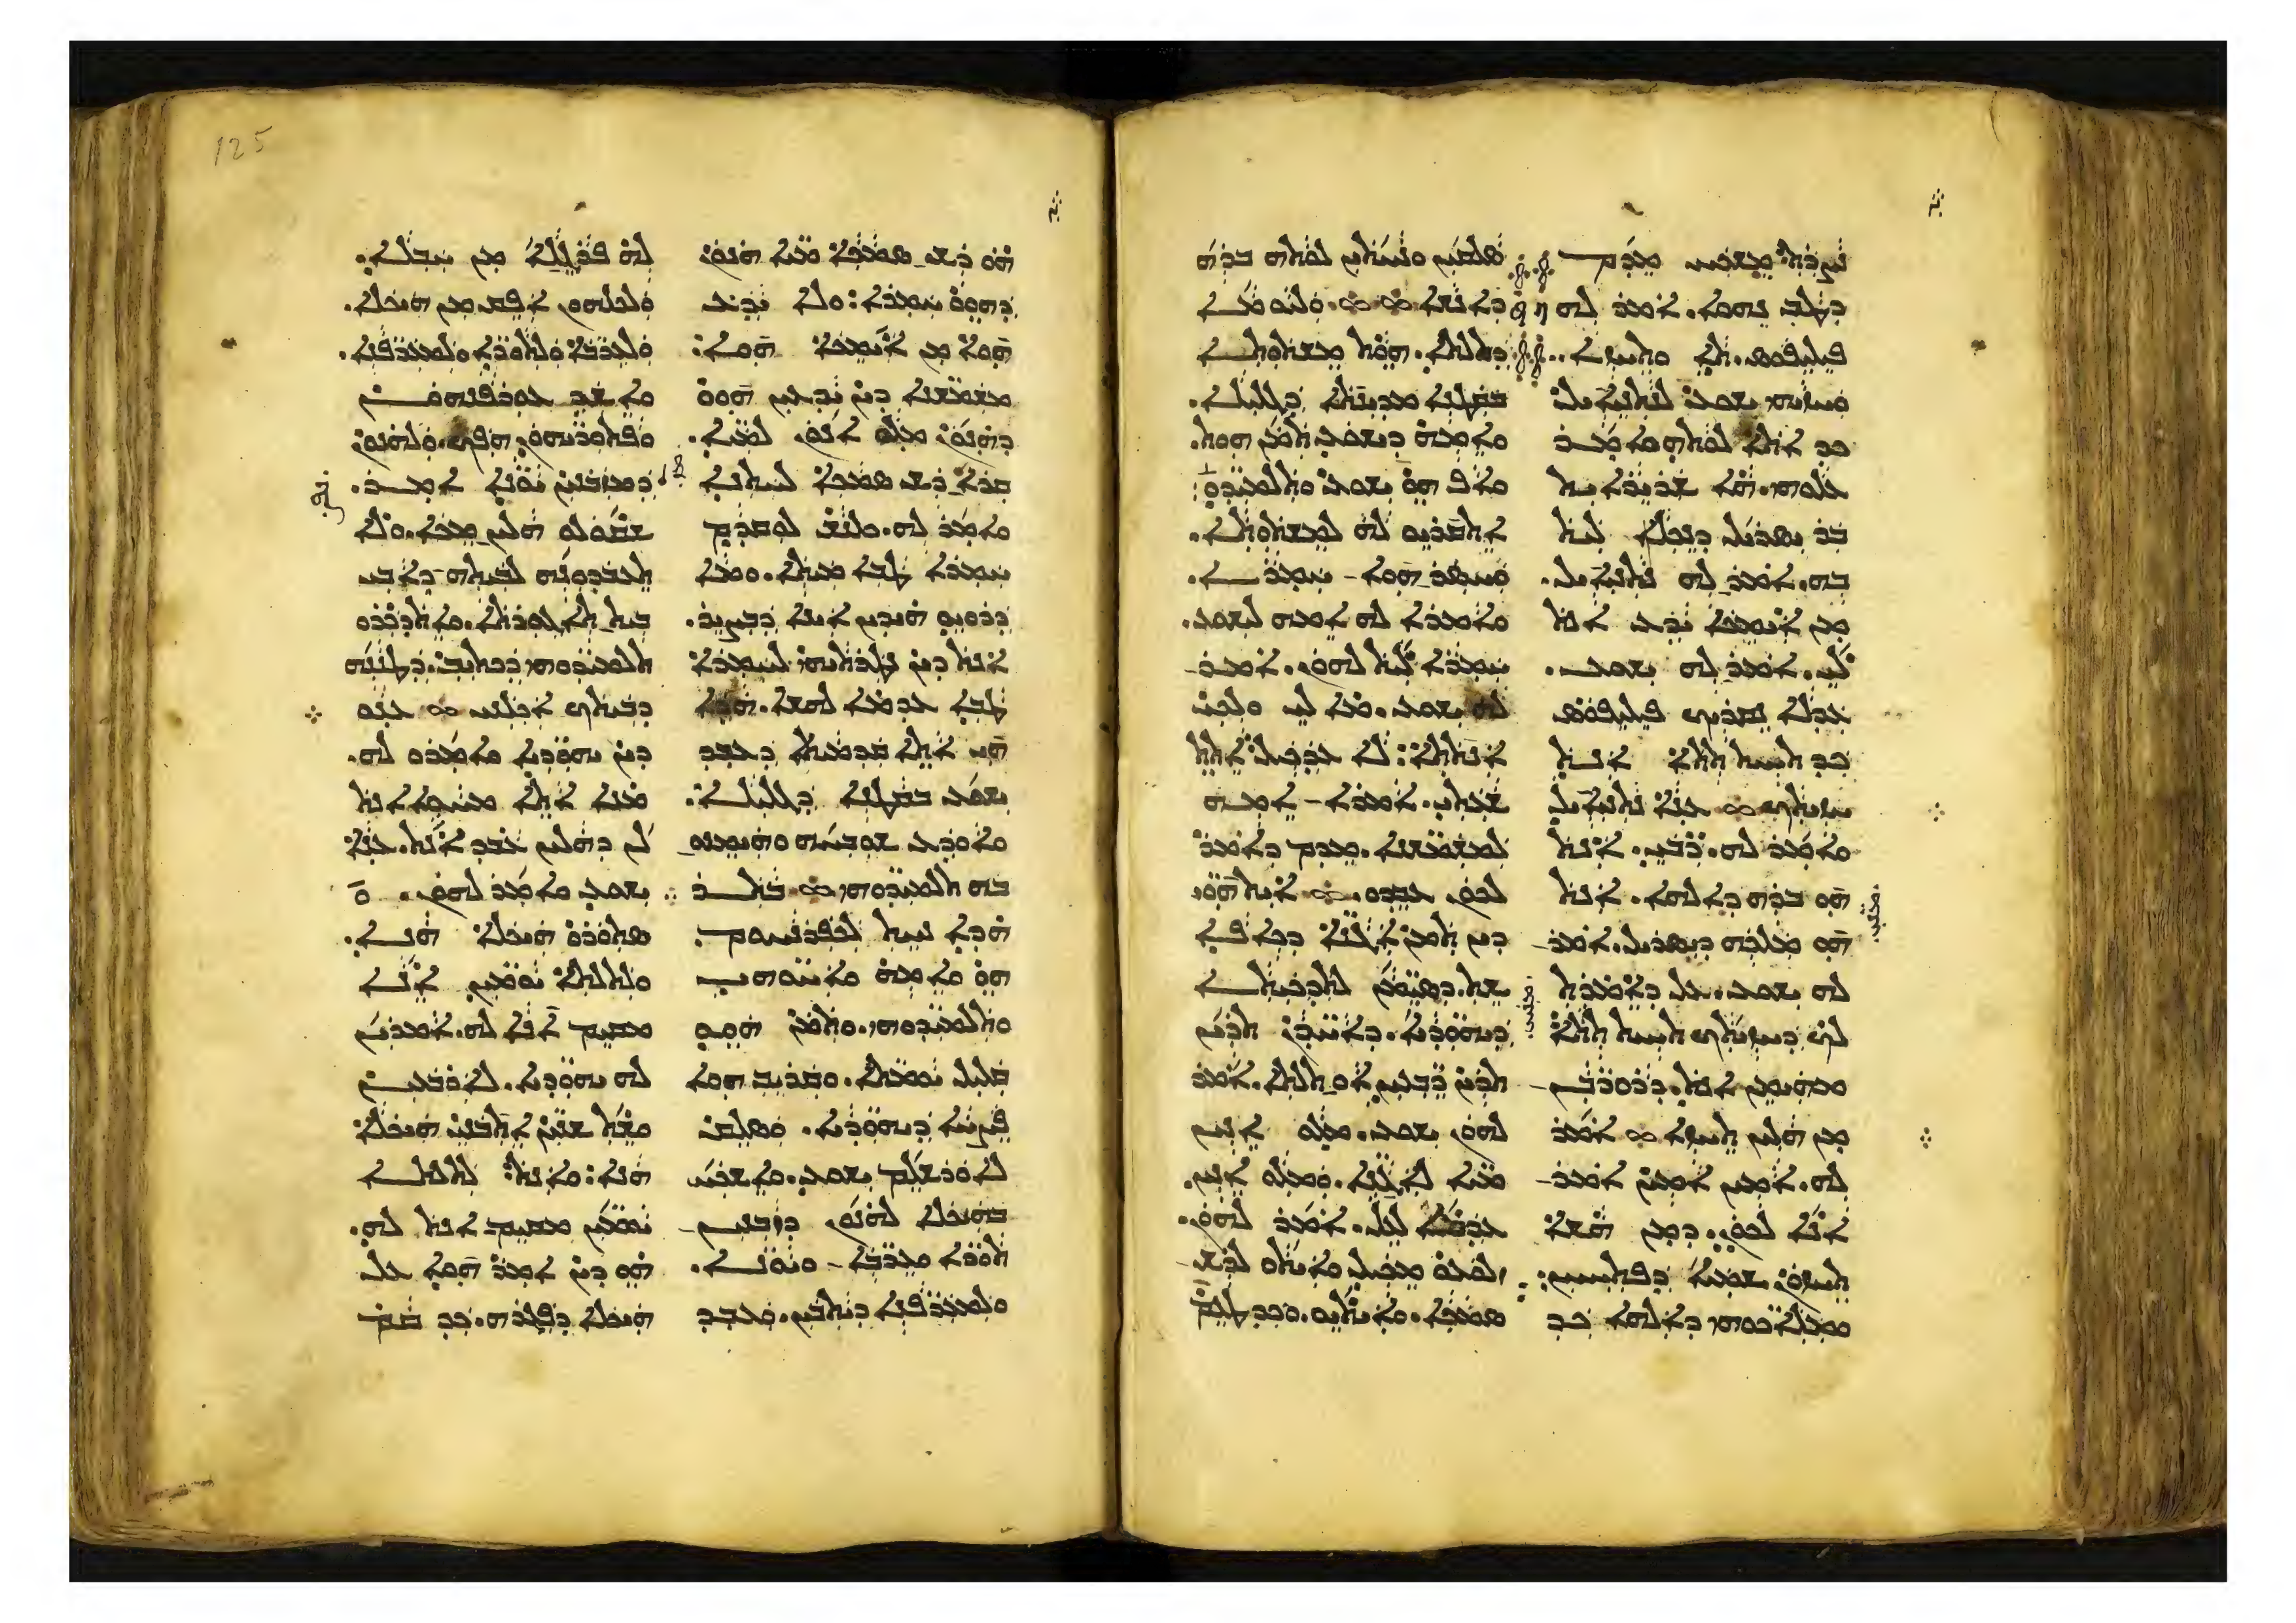 ܢܨܪܬ ܡܫܟܚ ܡܕܡ
ܕܛܒ ܢܗܘܐ. ܐܡܪ ܠܗ
ܦܝܠܝܦܘܣ. ܬܐ ܘܬܚܙܐ..
ܘܚܙܝܗܝ ܝܫܘܥ ܠܢܬܢܝܐܝܠ
ܟܕ ܐܬܐ ܠܘܬܗ ܘܐܡܪ
ܥܠܘܗܝ. ܗܐ ܫܪܝܪܐܝܬ
ܒܪ ܝܣܪܝܠ ܕܢܟܠܐ ܠܝܬ
ܒܗ. ܐܡܪ ܠܗ ܢܬܢܝܐܝܠ.
ܡܢ ܐܝܡܟܐ ܝܕܥ ܐܢܬ
ܠܝ. ܐܡܪ ܠܗ ܝܫܘܥ.
ܥܕܠܐ ܢܩܪܝܟ ܦܝܠܝܦܘܣ
ܟܕ ܬܚܝܬ ܬܬܐ ܐܢܬ
ܚܙܝܬܟ ܀ ܥܢܐ ܢܬܢܝܐܝܠ
ܘܐܡܪ ܠܗ. ܪܒܝ. ܐܢܬ
ܗܘ ܒܪܗ ܕܐܠܗܐ. ܐܢܬ
ܗܘ ܡܠܟܗ ܕܝܣܪܝܠ. ܐܡܪ
ܠܗ ܝܫܘܥ. ܥܠ ܕܐܡܪܬ
ܠܟ ܕܚܙܝܬܟ ܬܚܝܬ ܬܬܐ
ܡܗܝܡܢ ܐܢܬ. ܕܪܘܪܒܢ
ܡܢ ܗܠܝܢ ܬܚܙܐ ܀ ܐܡܪ
ܠܗ. ܐܡܝܢ ܐܡܝܢ ܐܡܪ
ܐܢܐ ܠܟܘܢ. ܕܡܢ ܗܫܐ
ܬܚܙܘܢ ܫܡܝܐ ܕܦܬܝܚܝܢ:
ܘܡܠܐܟܘܗܝ ܕܐܠܗܐ ܟܕ
ܣܠܩܝܢ ܘܢܚܬܝܢ ܠܘܬܗ ܒܪܗ
ܕܐܢܫܐ ܀ ܀. ܘܠܝܘܡܐ
ܕܬܠܬܐ. ܗܘܬ ܡܫܬܘܬܐ
ܒܩܛܢܐ ܡܕܝܢܬܐ ܕܓܠܝܠܐ.
ܘܐܡܗ ܕܝܫܘܥ ܬܡܢ ܗܘܬ.
ܘܐܦ ܗܘ ܝܫܘܥ ܘܬܠܡܝܕܘ̈
ܐܬܩܪܝܘ ܠܗ ܠܡܫܬܘܬܐ.
ܘܚܣܪ ܗܘܐ ܚܡܪܐ.
ܘܐܡܪܐ ܠܗ ܐܡܗ ܠܝܫܘܥ.
ܚܡܪܐ ܠܝܬ ܠܗܘܢ. ܐܡܪ
ܠܗ ܝܫܘܥ. ܡܐ ܠܝ ܘܠܟܝ
ܐܢܬܬܐ: ܠܐ ܥܕܟܝܠ ܐܬܬ
ܫܥܬܝ. ܐܡܪܐ ܐܡܗ
ܠܡܫܡܫܢܐ. ܡܕܡ ܕܐܡܪ
ܠܟܘܢ ܥܒܕܘ. ܀ ܐܝܬ ܗܘ̈ܝ
ܕܝܢ ܬܡܢ ܐܓܢܐ ܕܟܐܦܐ
ܫܬ. ܕܣܝܡܢ ܠܬܕܟܝܬܐ
ܕܝܗܘܕܝܐ. ܕܐܚܕܢ ܬܪܝܢ
ܬܪܝܢ ܪܒܥܝܢ ܐܘ ܬܠܬܐ. ܐܡܪ
ܠܗܘܢ ܝܫܘܥ. ܡܠܘ ܐܢܝܢ
ܡܝܐ ܠܐܓܢܐ. ܘܡܠܘ ܐܢܝܢ.
ܥܕܡܐ ܠܥܠ. ܐܡܪ ܠܗܘܢ.
ܙܠܘܥܘ ܡܟܝܠ ܘܐܝܬܘ ܠܪܫ
ܣܡܟܐ. ܘܐܝܬܝܘ. ܘܟܕ ܛܥܡ
ܗܘ ܪܫ ܣܡܟܐ ܡܝܐ ܗܢܘܢ
ܕܗܘܘ ܚܡܪܐ: ܘܠܐ ܝܕܥ
ܗܘܐ ܡܢ ܐܝܡܟܐ ܗܘܐ:
ܡܫܡܫܢܐ ܕܝܢ ܝܕܥܝܢ ܗܘܘ
ܕܗܢܘܢ ܡܠܘ ܐܢܘܢ ܠܡܝܐ.
ܩܪܐ ܪܫ ܣܡܟܐ ܠܚܬܢܐ
ܘܐܡܪ ܠܗ. ܟܠܢܫ ܠܘܩܕܡ
ܚܡܪܐ ܛܒܐ ܡܝܬܐ. ܘܡܐ
ܕܪܘܝܘ ܗܝܕܝܢ ܐܝܢܐ ܕܒܨܝܪ.
ܐܢܬ ܕܝܢ ܢܛܪܬܝܗܝ ܠܚܡܪܐ
ܛܒܐ ܥܕܡܐ ܠܗܫܐ. ܗܕܐ
ܗܝ ܐܬܐ ܩܕܡܝܬܐ ܕܥܒܕ
ܝܫܘܥ ܒܩܛܢܐ ܕܓܠܝܠܐ.
ܘܐܘܕܥ ܫܘܒܚܗ ܘܗܝܡܢܘ
ܒܗ ܬܠܡܝܕܘܗܝ ܀ ܒܬܪ
ܗܕܐ ܢܚܬ ܠܟܦܪܢܚܘܡ
ܗܘ ܘܐܡܗ ܘܐܚܘܗܝ
ܘܬܠܡܝܕܘܗܝ. ܘܬܡܢ ܗܘܘ
ܩܠܝܠ ܝܘܡܬܐ. ܘܩܪܝܒ ܗܘܐ
ܦܨܚܐ ܕܝܗܘܕܝܐ. ܘܣܠܩ
ܠܐܘܪܫܠܡ ܝܫܘܥ. ܘܐܫܟܚ
ܒܗܝܟܠܐ ܠܗܢܘܢ ܕܙܒܢܝܢ
ܬܘܪܐ ܘܥܪܒܐ ܘܝܘܢܐ.
ܘܠܡܥܪܦܢܐ ܕܝܬܒܝܢ. ܘܥܒܕ
ܠܗ ܦܪܓܠܐ ܡܢ ܚܒܠܐ.
ܘܠܟܠܗܘܢ ܐܦܩ ܡܢ ܗܝܟܠܐ.
ܘܠܥܪܒܐ ܘܠܬܘܪܐ ܘܠܡܥܪܦܢܐ.
ܘܐܫܕ ܥܘܪܦܢܗܘܢ
ܘܦܬܘܪܝܗܘܢ ܗܦܟ. ܘܠܗܢܘܢ
ܕܡܙܒܢܝܢ ܝܘܢܐ ܐܡܪ.
ܫܩܘܠܘ ܗܠܝܢ ܡܟܐ. ܘܠܐ
ܬܥܒܕܘܢܗ ܠܒܝܬܗ ܕܐܒܝ
ܒܝܬ ܬܐܓܘܪܬܐ. ܘܐܬܕܟܪܘ
ܬܠܡܝܕܘܗܝ ܕܟܬܝܒ. ܕܛܢܢܗ
ܕܒܝܬܟ ܐܟܠܢܝ ܀ ܥܢܘ
ܕܝܢ ܝܗܘܕܝܐ ܘܐܡܪܘ ܠܗ.
ܡܢܐ ܐܬܐ ܡܚܘܐ ܐܢܬ
ܠܢ ܕܗܠܝܢ ܥܒܕ ܐܢܬ. ܥܢܐ
ܝܫܘܥ ܘܐܡܪ ܠܗܘܢ.
ܣܬܘܪܘ ܗܝܟܠܐ ܗܢܐ.
ܘܠܬܠܬܐ ܝܘܡܝܢ ܐܢܐ
ܡܩܝܡ ܐܢܐ ܠܗ. ܐܡܪܝܢ
ܠܗ ܝܗܘܕܝܐ. ܠܐܪܒܥܝܢ
ܘܫܬ ܫܢܝܢ ܐܬܒܢܝ ܗܝܟܠܐ
ܗܢܐ: ܘܐܢܬ ܠܬܠܬܐ
ܝܘܡܝܢ ܡܩܝܡ ܐܢܬ ܠܗ.
ܗܘ ܕܝܢ ܐܡܪ ܗܘܐ ܥܠ
ܗܝܟܠܐ ܕܦܓܪܗ. ܟܕ ܩܡ
125